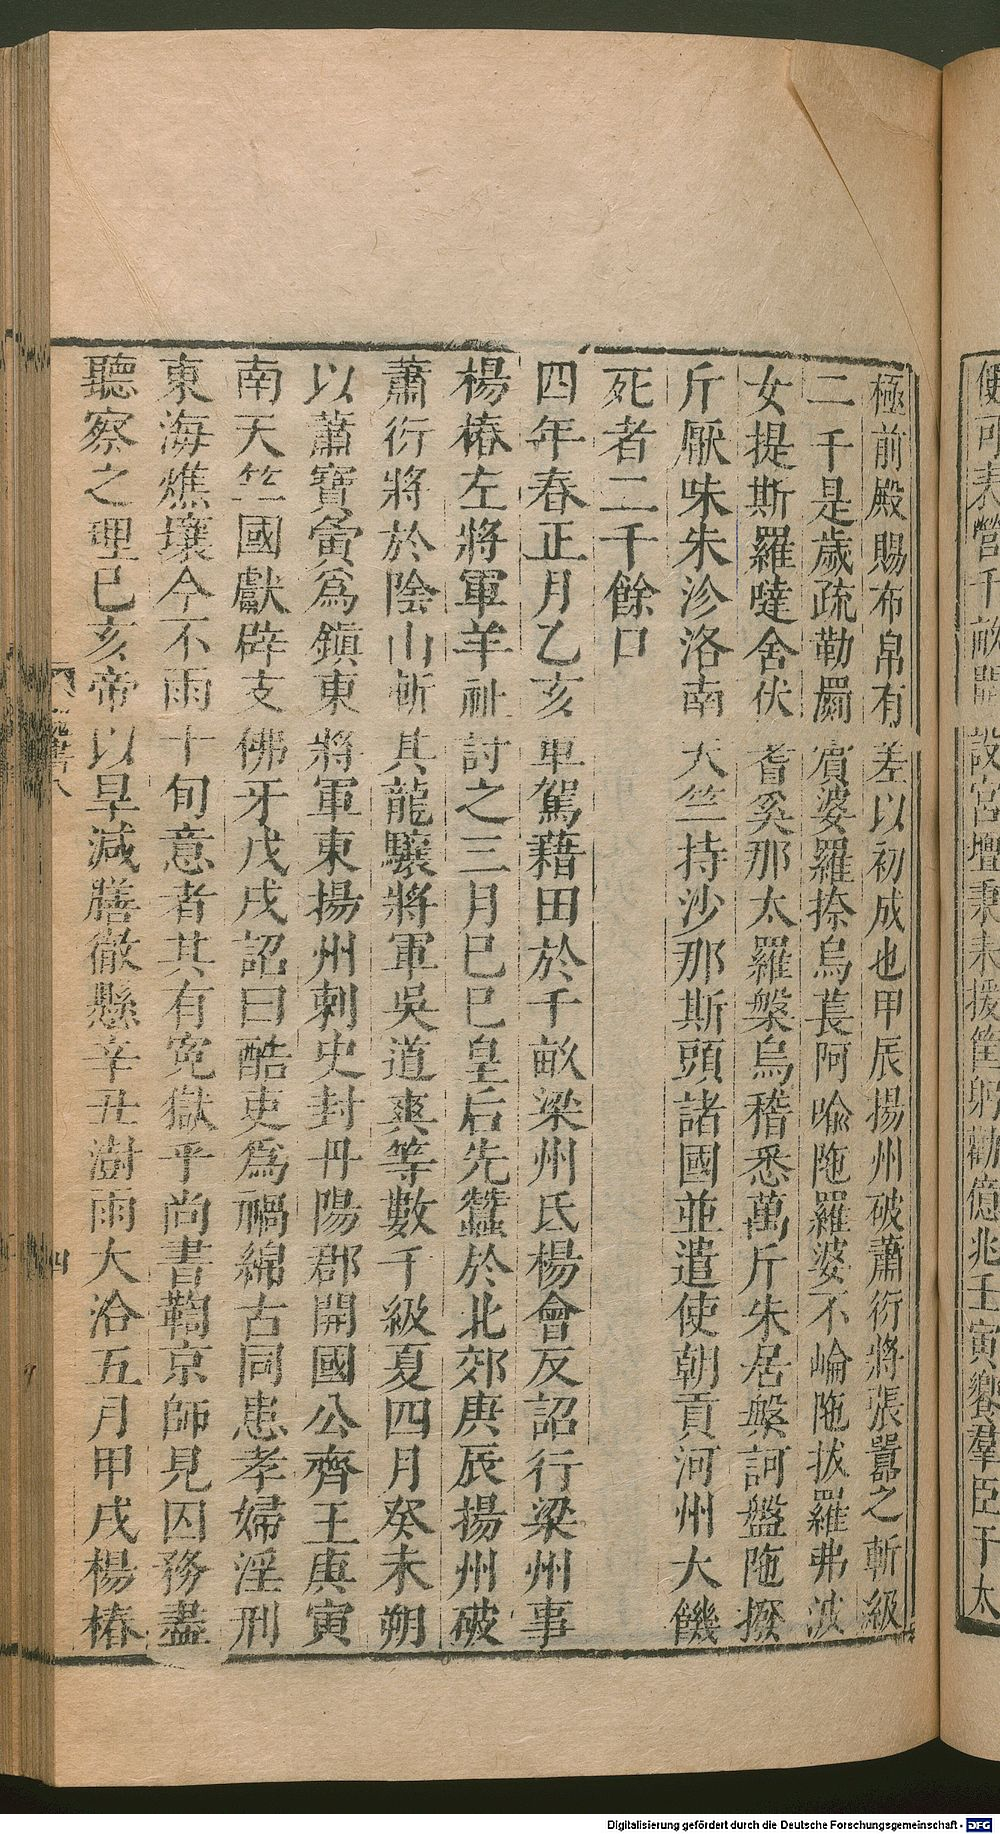 使可表營千畝開設宮壇秉耒援筐躬勸億兆壬寅饗羣臣于太
極前殿賜布帛有差以初成也甲辰揚州破蕭衍將張囂之斬級
二千是歲疏勒罽賓婆羅捺烏萇阿喻陁羅婆不崘陁拔羅弗波
女提斯羅噠舍伏耆奚那太羅槃烏稽悉萬斤朱居槃訶盤陁撥
斤厭味朱沴洛南天竺持沙那斯頭諸國並遣使朝貢河州大饑
死者二千餘口
四年春正月乙亥車駕藉田於千畝梁州氐楊會反詔行梁州事
楊椿左將軍羊祉討之三月巳巳皇后先蠶於北郊庚辰揚州破
蕭衍將於陰山斬其龍驤將軍吳道爽等數千級夏四月癸未朔
以蕭寶夤爲鎮東將軍東揚州刺史封丹陽郡開國公齊王庚寅
南天竺國獻辟支佛牙戊戌詔曰酷吏爲禍綿古同患孝婦淫刑
東海燋壤今不雨十旬意者其有寃獄乎尚書鞫京師見囚務盡
聽察之理已亥帝以旱減膳徹懸辛丑澍雨大洽五月甲戌楊椿
魏書八
四
Digitalisierung gefördert durch die Deutsche Forschungsgemeinschaft - DFG